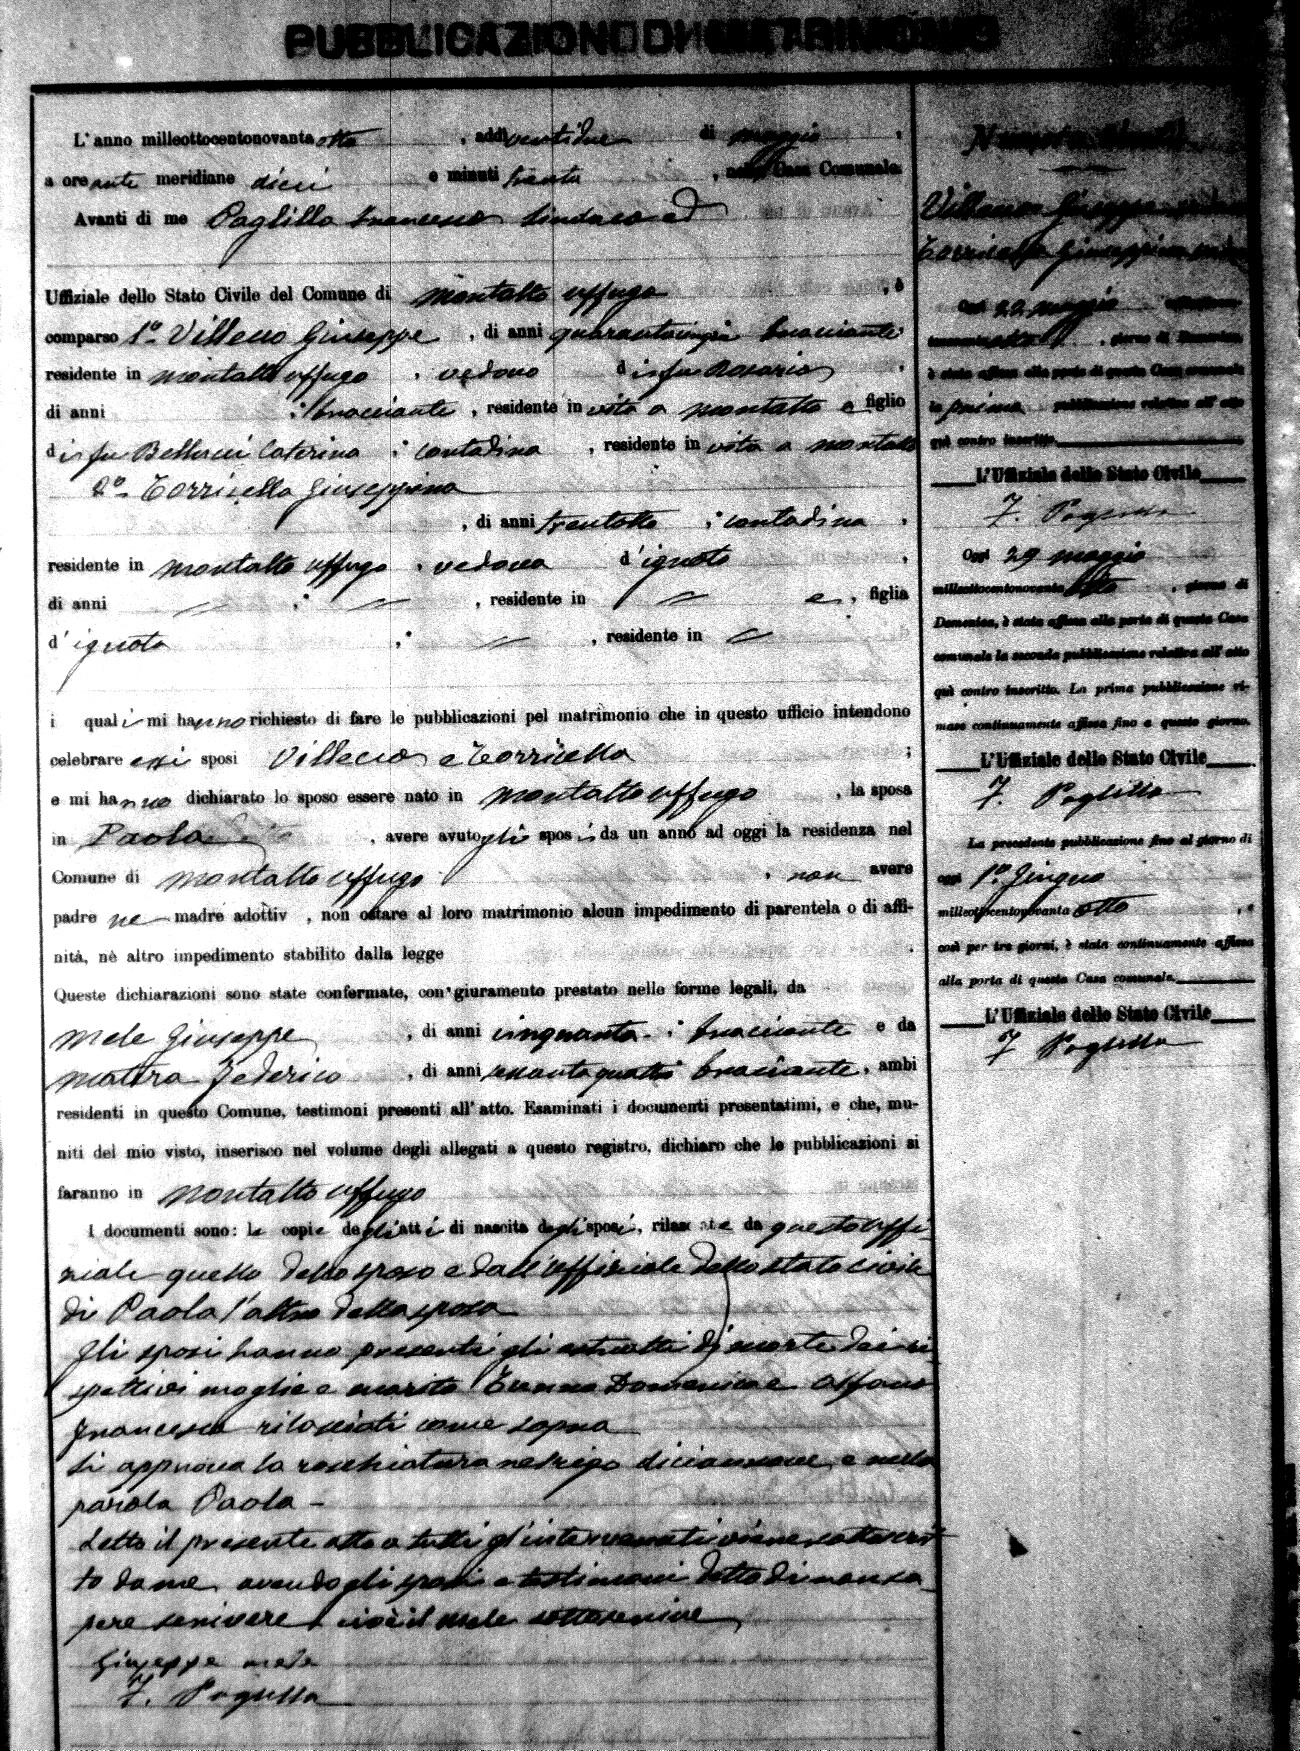 PUBBLICAZIONI DI MATRIMONIO
L'anno milleottocentonovanta otto, addì ventidue di maggio,
a ore ante meridiane dieci e minuti trenta, nella Casa Comunale.
Avanti di me Paglilla Francesco Sindaco ed
Uffiziale dello Stato Civile del Comune di Montalto Uffugo, è
comparso 1º Villecco Giuseppe, di anni bracciante
residente in Montalto Uffugo, vedovo di fu Rosario,
di anni ; bracciante, residente in vita a Montalto e figlio
di fu Bellucci Caterina ; contadina, residente in vita a Montalto
2º Torricella Giuseppina
, di anni trentotto ; contadina,
residente in Montalto Uffugo, vedova d'ignoto,
di anni ; , residente in e, figlia
d'ignota ; , residente in
i quali mi hanno richiesto di fare le pubblicazioni pel matrimonio che in questo ufficio intendono
celebrare essi sposi Villecco e Torricella ;
e mi hanno dichiarato lo sposo essere nato in Montalto Uffugo, la sposa
in Paola, avere avuto gli sposi da un anno ad oggi la residenza nel
Comune di Montalto Uffugo, non avere
padre ne madre adottiv , non ostare al loro matrimonio alcun impedimento di parentela o di affi-
nità, nè altro impedimento stabilito dalla legge .
Queste dichiarazioni sono state confermate, con giuramento prestato nelle forme legali, da
Mele Giuseppe, di anni cinquanta ; bracciante e da
Federico, di anni bracciante, ambi
residenti in questo Comune, testimoni presenti all'atto. Esaminati i documenti presentatimi, e che, mu-
niti del mio visto, inserisco nel volume degli allegati a questo registro, dichiaro che le pubblicazioni si
faranno in Montalto Uffugo
I documenti sono: le copie degli atti di nascita degli sposi, rilasciate da questo uffi-
ziale quello dello sposo e dall'uffiziale dello stato civile
di Paola l'altro della sposa
Gli sposi hanno presenti gli estratti di morte dei ri-
spettivi moglie e marito Domenica e
Francesco rilasciati come sopra
Si approva la raschiatura nel rigo diciannove, e nella
parola Paola -
Letto il presente atto a tutti gl'intervenuti viene sottoscrit-
to da me avendo gli sposi e testimoni detto di non sa-
pere scrivere, cioè il Mele sottoscrive
Giuseppe Mele
F. Paglilla
Numero
Villecco Giuseppe
Torricella Giuseppina
Oggi 22 maggio milleottocen-
tonovantotto, giorno di Domenica,
è stata affissa alla porta di questa Casa comunale
la prima pubblicazione relativa all'atto
quì contro inscritto.
L'Uffiziale dello Stato Civile
F. Paglilla
Oggi 29 maggio
milleottocentonovanta otto, giorno di
Domenica, è stata affissa alla porta di questa Casa
comunale la seconda pubblicazione relativa all'atto
quì contro inscritto. La prima pubblicazione ri-
mase continuamente affissa fino a questo giorno.
L'Uffiziale dello Stato Civile
F. Paglilla
La precedente pubblicazione fino al giorno di
oggi 1º Giugno
milleottocentonovanta otto, e
così per tre giorni, è stata continuamente affissa
alla porta di questa Casa comunale.
L'Uffiziale dello Stato Civile
F. Paglilla